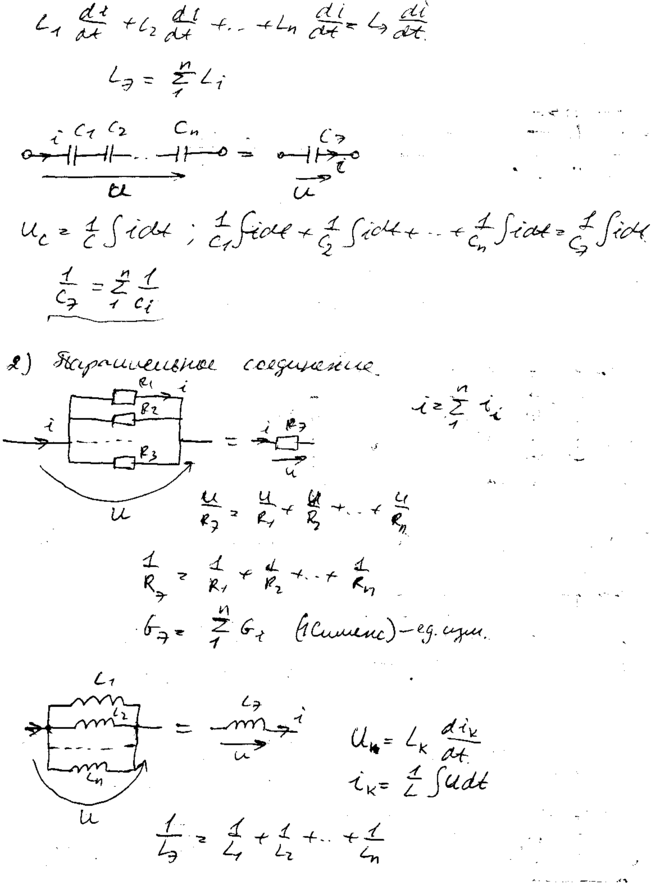 L₁ di/dt + L₂ di/dt + ... + Lₙ di/dt = Lэ di/dt.
Lэ = Σ₁ⁿ Lᵢ
i C₁ C₂ ... Cₙ = Cэ i
u u
u_c = 1/C ∫idt ; 1/C₁ ∫idt + 1/C₂ ∫idt + ... + 1/Cₙ ∫idt = 1/Cэ ∫idt
1/Cэ = Σ₁ⁿ 1/Cᵢ
2) Параллельное соединение.
R₁ i
i R₂ = i Rэ i = Σ₁ⁿ iᵢ
R₃ u
u
u/Rэ = u/R₁ + u/R₂ + ... + u/Rₙ
1/Rэ = 1/R₁ + 1/R₂ + ... + 1/Rₙ
Gэ = Σ₁ⁿ Gᵢ (1Сименс) – ед. изм.
L₁
L₂ = Lэ i
u uₖ = Lₖ diₖ/dt.
Lₙ iₖ = 1/L ∫Udt
u
1/Lэ = 1/L₁ + 1/L₂ + ... + 1/Lₙ